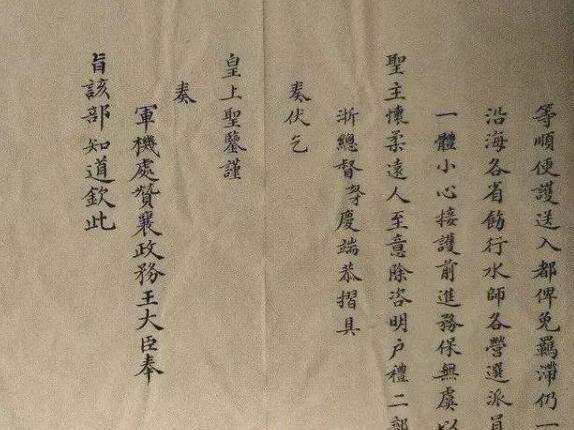 等順便護送入都俾免羈滯仍一
沿海各省飭行水師各營選派員
一體小心接護前進務保無虞以
聖主懷柔遠人至意除咨明户禮二部
浙總督等慶端恭摺具
奏伏乞
皇上聖鑒謹
奏
軍機處贊襄政務王大臣奉
旨該部知道欽此